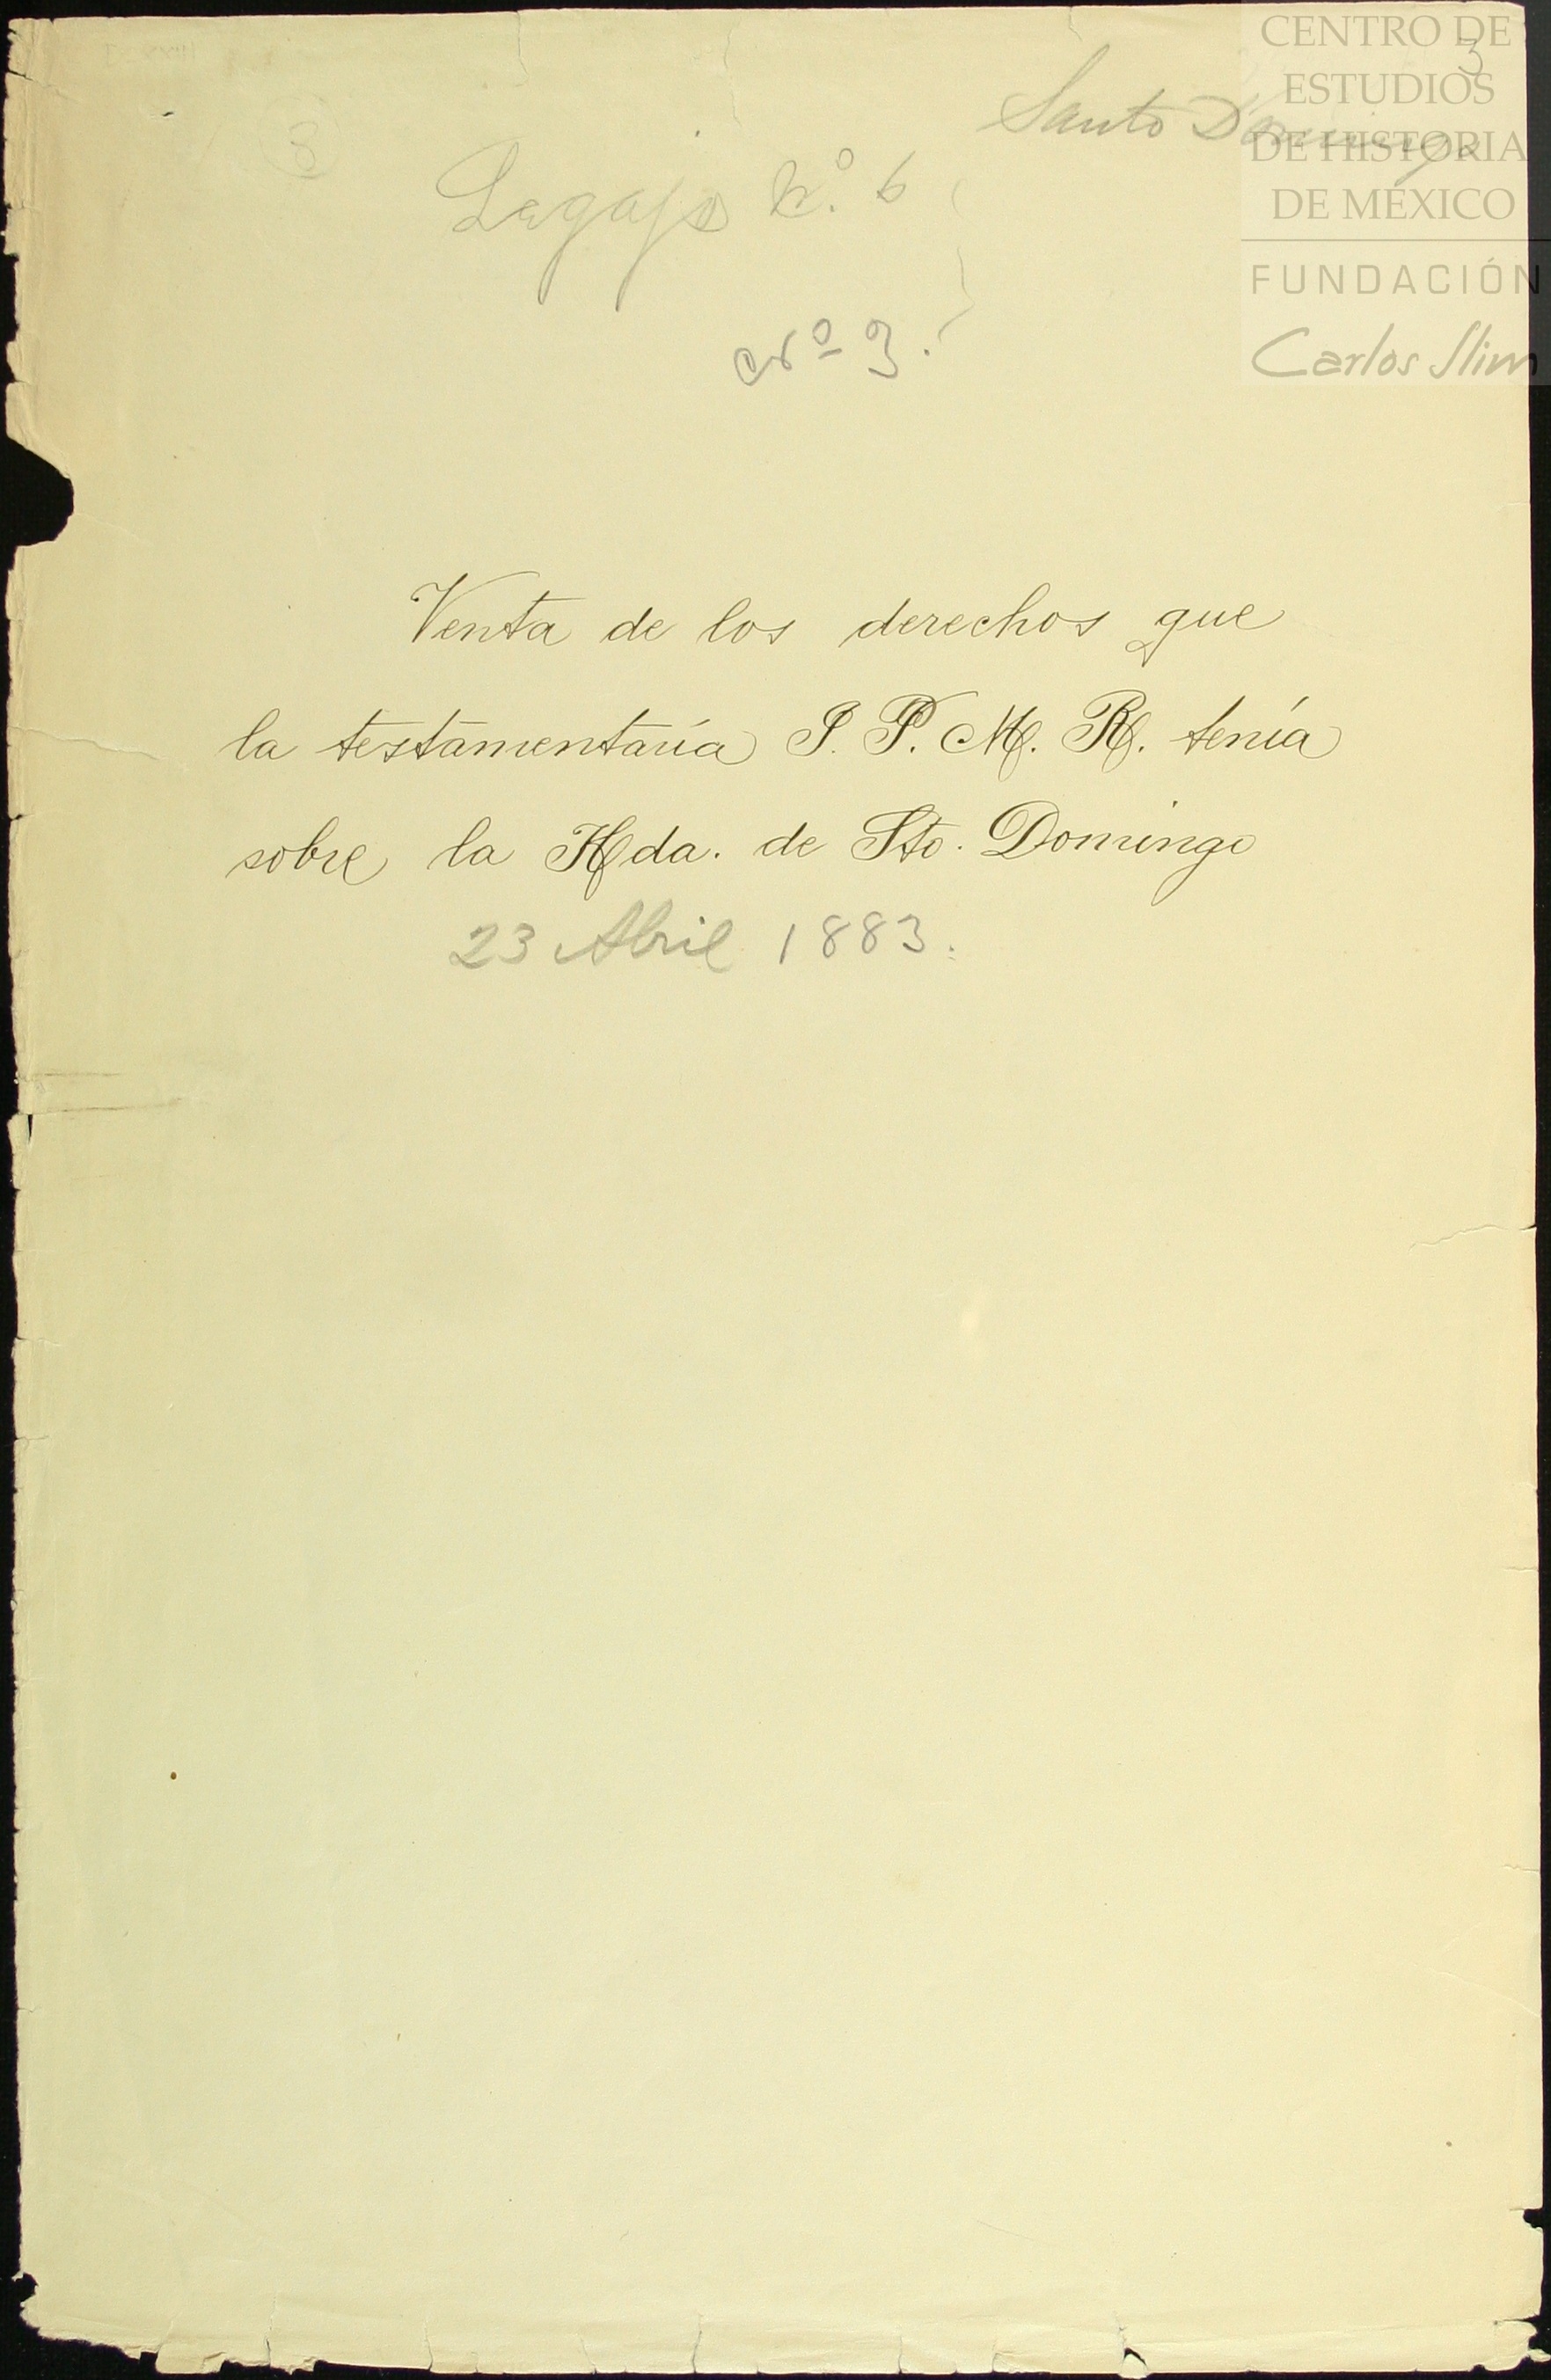 3
Santo Domingo
3
Legajo N.o 6
No 3.
Venta de los derechos que
la testamentaría I. P. M. R. tenía
sobre la Hda. de Sto. Domingo
23 Abril 1883.
CENTRO DE
ESTUDIOS
DE HISTORIA
DE MÉXICO
FUNDACIÓN
Carlos Slim